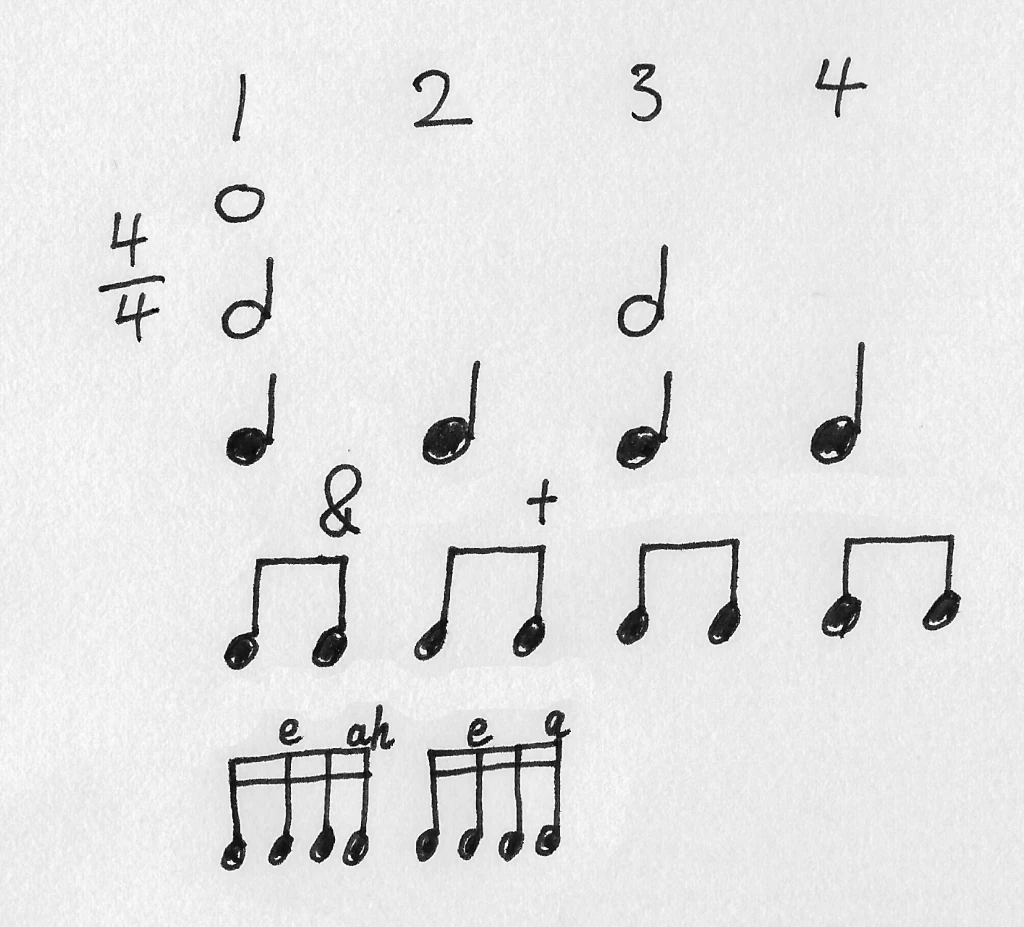 1 2 3 4
4
4
& +
e ah e a